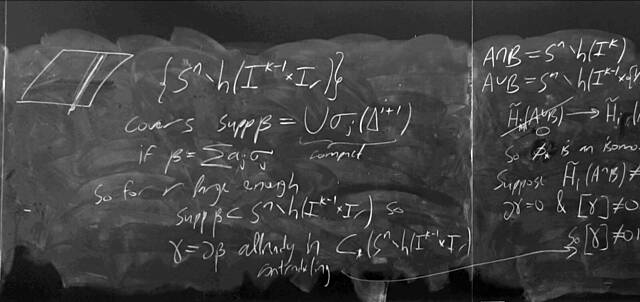 {Sⁿ∖h(Iᵏ⁻¹×Iᵣ)}
covers supp β = ∪σⱼ(Δⁱ⁺¹)
compact
if β = Σaⱼσⱼ
so for r large enough
supp β ⊂ Sⁿ∖h(Iᵏ⁻¹×Iᵣ) so
γ=∂β already in C (Sⁿ∖h(Iᵏ⁻¹×Iᵣ)
contradicting
A∩B = Sⁿ∖h(Iᵏ)
A∪B = Sⁿ∖h(Iᵏ⁻¹×
H̃ᵢ(A∪B) → H̃ᵢ
0
So
Suppose H̃ᵢ(A∩B) ≠
∂γ=0 & [γ]≠0
so [γ]≠0